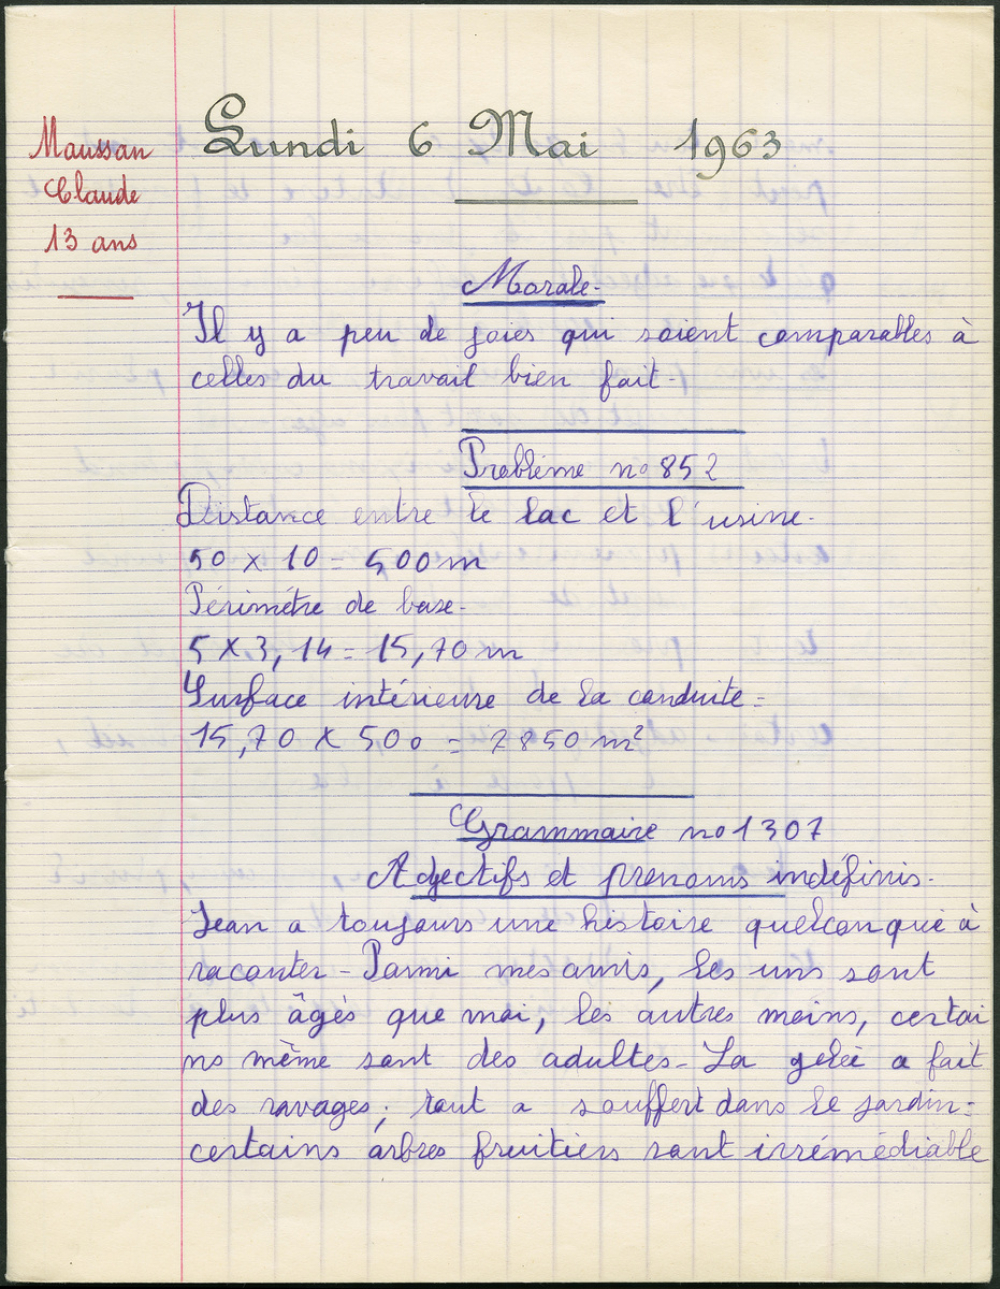 Lundi 6 Mai 1963
Maussan
Claude
13 ans
Morale.
Il y a peu de joies qui soient comparables à
celles du travail bien fait.
Problème no 852
Distance entre le lac et l'usine.
50 x 10 = 500m
Périmètre de base.
5 x 3,14 = 15,70m
Surface intérieure de la conduite =
15,70 x 500 = 7850 m²
Grammaire no 1307
Adjectifs et pronoms indéfinis.
Jean a toujours une histoire quelconque à
raconter - Parmi mes amis, les uns sont
plus âgés que moi, les autres moins, certai
ns même sont des adultes - La gelée a fait
des ravages; tout a souffert dans le jardin:
certains arbres fruitiers sont irrémédiable